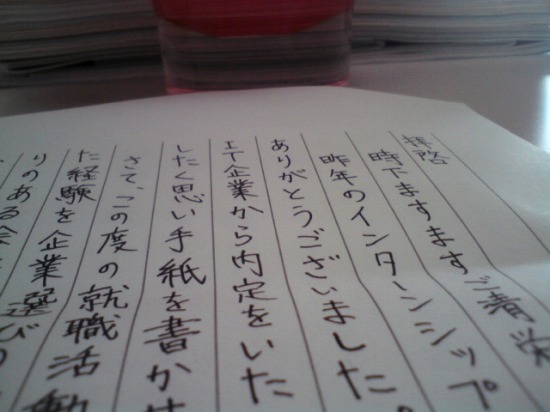 拝啓
時下ますますご清栄
昨年のインターンシップ
ありがとうございました。
IT企業から内定をいた
したく思い手紙を書かせ
さて、この度の就職活動
た経験を企業選びの
りのある